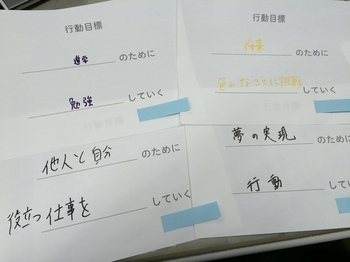 行動目標
進学のために
勉強していく
行動目標
将来のために
色んなことに挑戦していく
行動目標
他人と自分のために
役立つ仕事をしていく
行動目標
夢の実現のために
行動していく